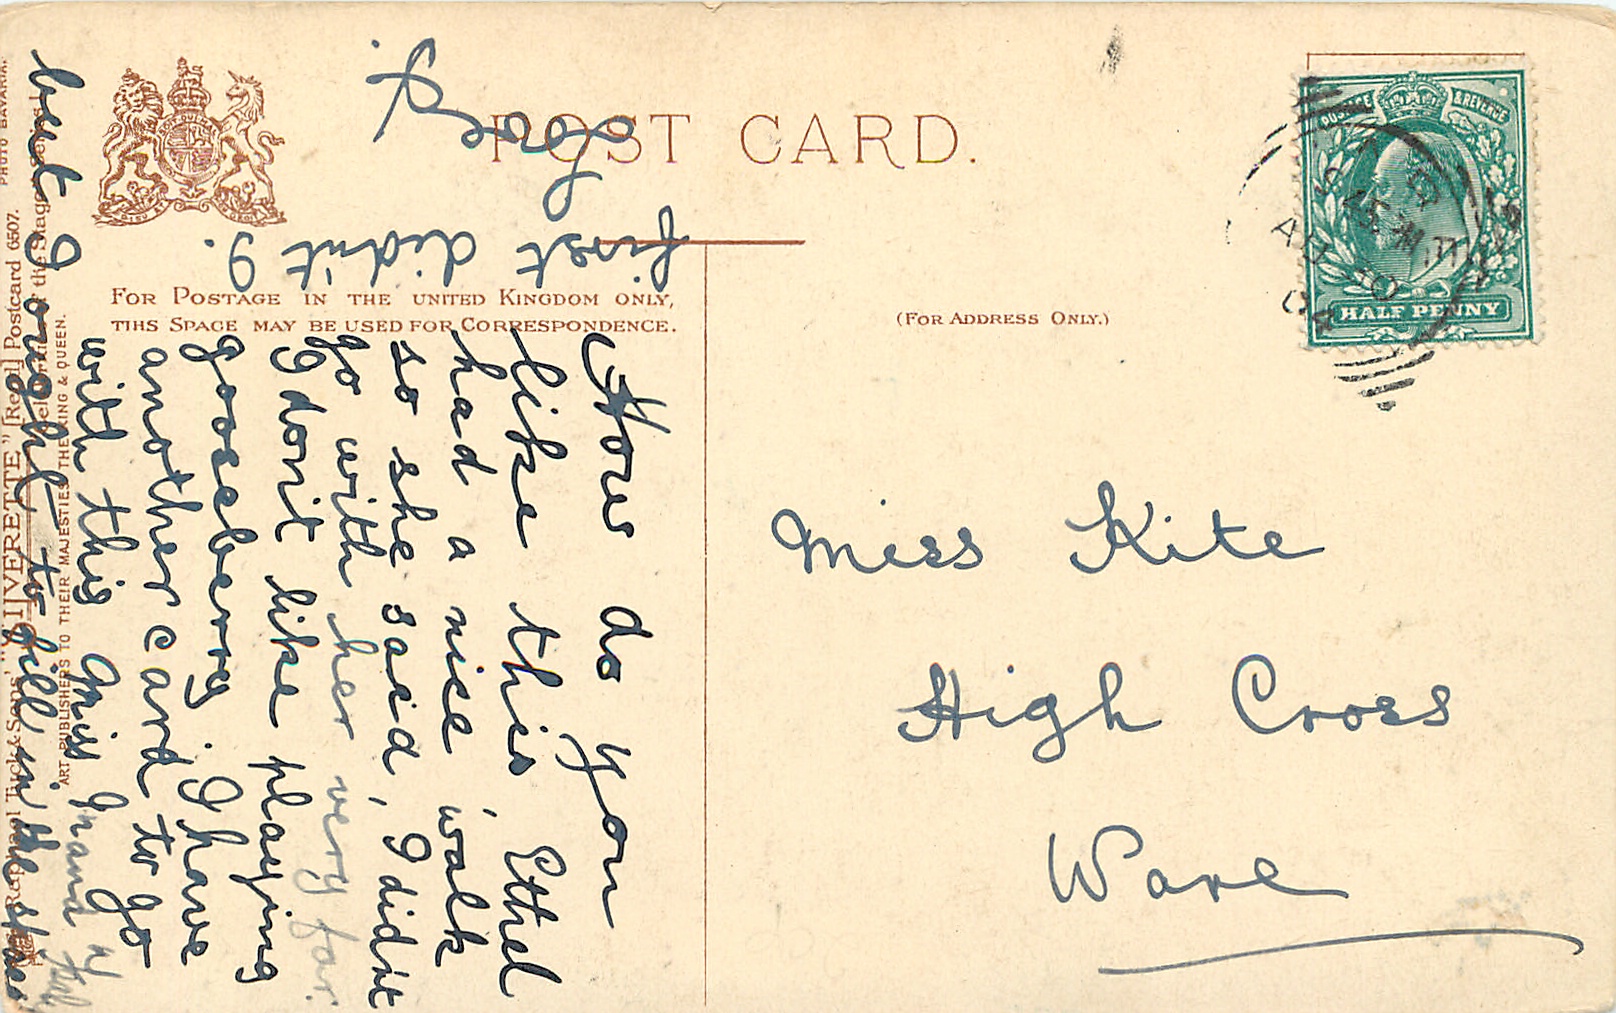 POST CARD.
FOR POSTAGE IN THE UNITED KINGDOM ONLY,
THIS SPACE MAY BE USED FOR CORRESPONDENCE.
(FOR ADDRESS ONLY.)
POSTAGE & REVENUE
HALF PENNY
AU 10
Miss Kite
High Cross
Ware
How do you
like this, Ethel
had a nice walk
so she said, I didnt
go with her very far.
I don't like playing
gooseberry. I have
another card to go
with this Miss
but I ought to fill in the
first didn't I.
Love
PHOTO BAVARIA.
Raphael Tuck & Sons' [Regd] Postcard 6507.
ART PUBLISHERS TO THEIR MAJESTIES THE KING & QUEEN.